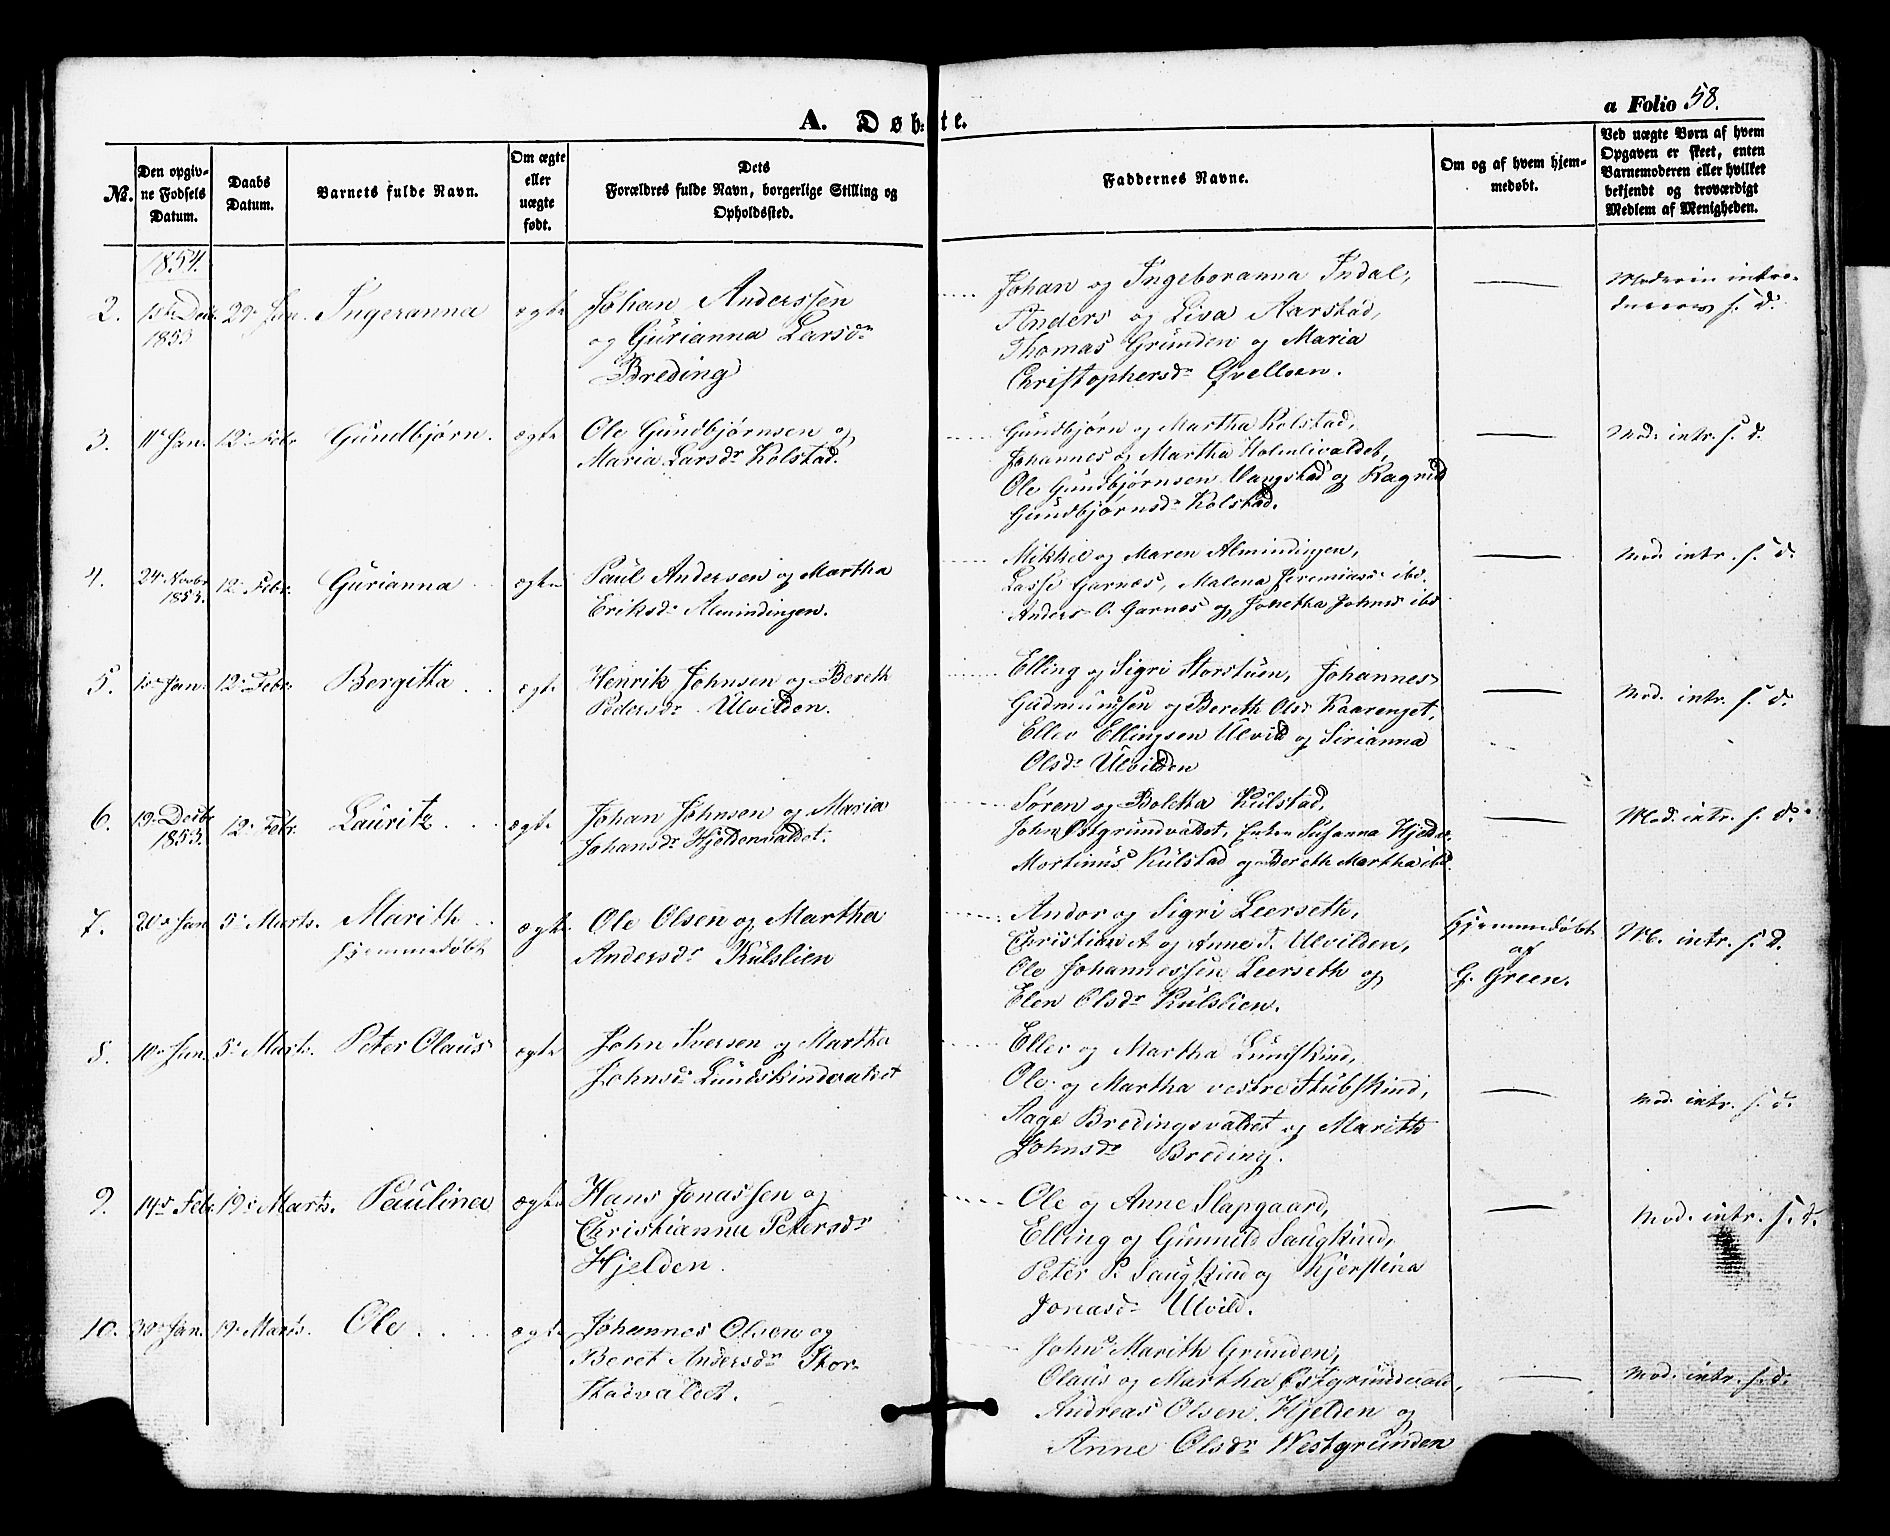 A. Døbte.
a Folio 58.
No.
Den opgivne Fødsels Datum.
Daabs Datum.
Barnets fulde Navn.
Om ægte eller uægte født.
Dets Forældres fulde Navn, borgerlige Stilling og Opholdssted.
Faddernes Navne.
Om og af hvem hjemmedøbt.
Ved uægte Børn af hvem Opgaven er skeet, enten Barnemoderen eller hvilket bekjendt og troværdigt Medlem af Menigheden.
1854.
2. Decbr 1853 29de Jan. Ingeranna ægte
Johan Anderssen
og Gurianna Larsdr
Breding
Johan og Ingeboranna Indal,
Anders og Lisa Aarstad,
Thomas Grunden og Maria
Christophersdr Qvelloen.
Moderen intro-
duceres s. d.
3. 11te Jan. 12te Febr Gundbjørn. ægte
Ole Gundbjørnsen og
Maria Larsdr Kolstad.
Gundbjørn og Martha Kolstad,
Johannes og Martha Holmlivaldet,
Ole Gundbjørnsen Vangstad og Ragnild
Gundbjørnsdr Kolstad.
Mod. intr. s. d.
4. 24de Novbr 1853. 12te Febr. Gurianna ægte
Paul Andersen og Martha
Eriksdr Almindingen.
Mikkel og Maren Almindingen,
Lasse Garnæs, Malena Jeremiasdr ibd.
Anders O. Garnæs og Jonetha Johnsd ibd
Mod. intr. s. d.
5. 1ste Jan. 12te Febr. Bergitta ægte
Henrik Johnsen og Bereth
Pedersdr Ulvilden.
Elling og Sigri Storstuen, Johannes
Gudmundsen og Bereth Olsdr Kaarenget,
Ellev Ellingsen Ulvild og Sirianna
Olsdr Ulvilden
Mod. intr. s. d.
6. 19de Decbr 1853. 12te Febr. Lauritz ægte
Johan Johnsen og Maria
Johansdr Hjeldenvaldet.
Søren og Boletta Kulstad,
John Østgrundvaldet, Enken Susanna Hjelde.
Mortinus Kulstad og Bereth Martha ibd.
Mod. intr. s. d.
7. 20de Jan 5te Marts. Marith ægte
Hjemmedøbt
Ole Olsen og Martha
Andersdr Kulslien
Andor og Sigri Leerseth,
Christian A og Anne T. Ulvilden,
Ole Johannessen Leerseth og
Elen Olsdr Kulslien.
Hjemmedøbt
af
G. Green.
M. intr. s. d.
8. 10de Jan. 5te Marts. Peter Olaus ægte
John Iversen og Martha
Johnsdr Lundskindvaldet
Ellev og Martha Lundskind,
Ole og Martha vestre Stubskind,
Aage Bredingsvaldet og Marith
Johnsdr Breding.
Mod. intr. s. d.
9. 14de Febr 19de Marts. Paulina ægte
Hans Jonassen og
Christianna Petersdr
Hjelden.
Ole og Anne Slapgaard,
Elling og Gunnild Saugskind,
Peter P. Saugskind og Kjerstina
Jonasdr Ulvild.
Mod. intr. s. d.
10. 30te Jan. 19de Marts. Ole ægte
Johannes Olsen og
Beret Andersdr Stor-
stadvaldet.
John Marith Grunden,
Olaus og Martha Østgrundvald,
Andreas Olsen Hjelden og
Anne Olsdr Westgrunden
Mod. intr. s. d.